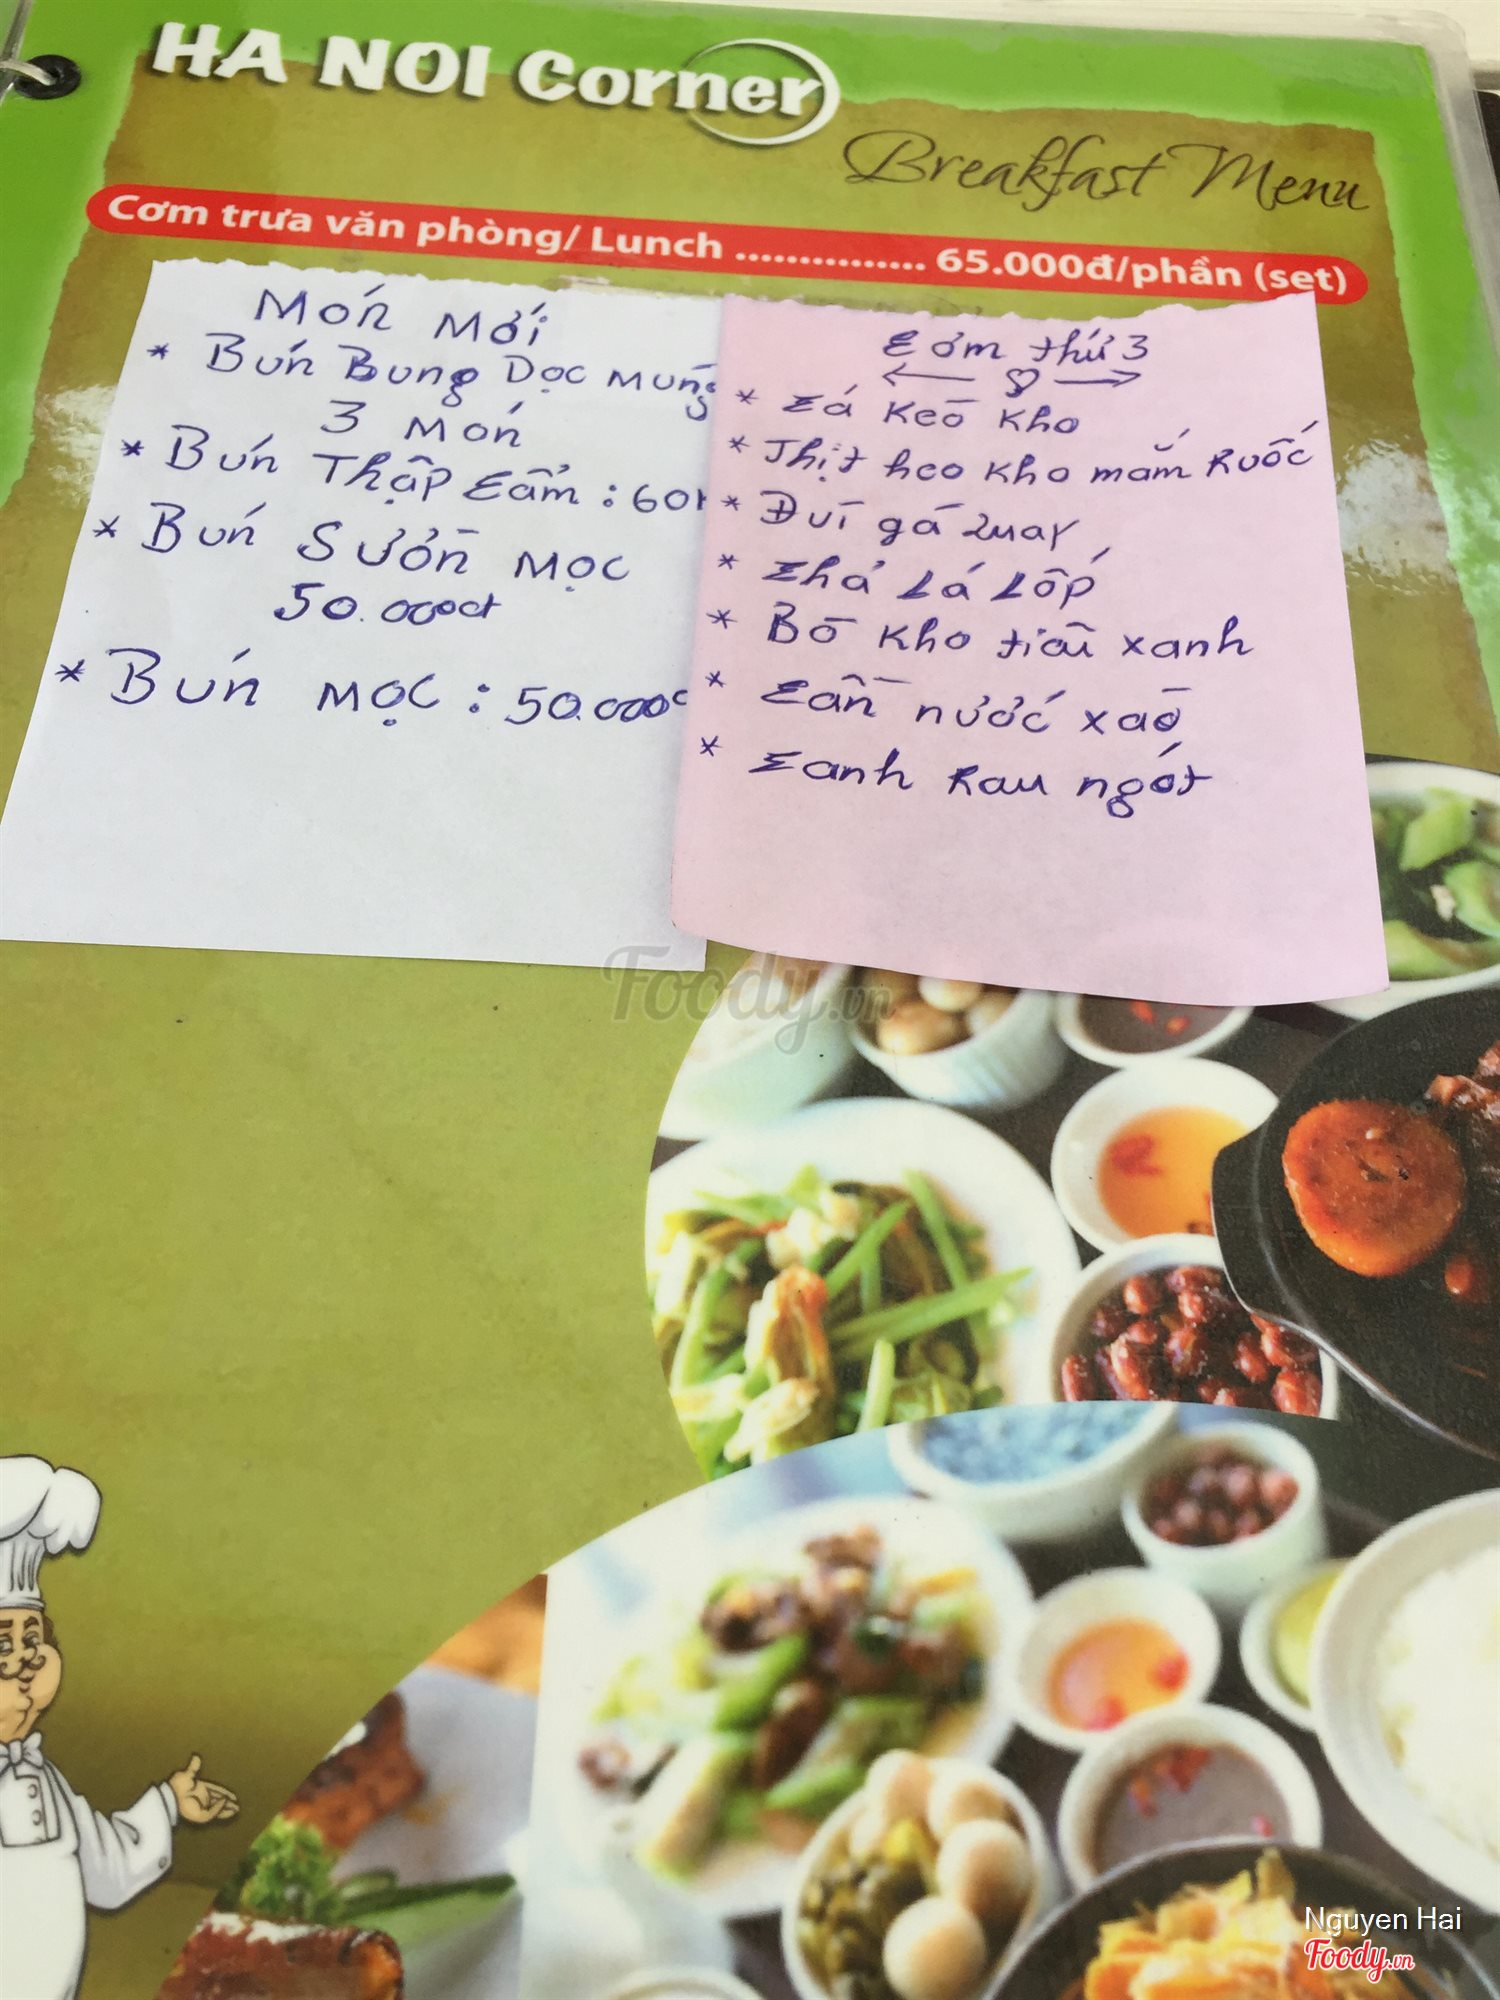 HA NOI Corner
Breakfast Menu
Cơm trưa văn phòng/ Lunch ............... 65.000đ/phần (set)
Món Mới
* Bún Bung Dọc Mùng
3 Món
* Bún Thập Cẩm : 60
* Bún Sườn Mọc
50.000đ
* Bún Mọc : 50.000
Cơm thứ 3
* Cá Kèo Kho
* Thịt heo kho mắm Ruốc
* Đùi gà quay
* Chả Lá Lốp
* Bò kho tiêu xanh
* Cần nước xào
* Canh Rau ngót
Foody.vn
Nguyen Hai
Foody.vn